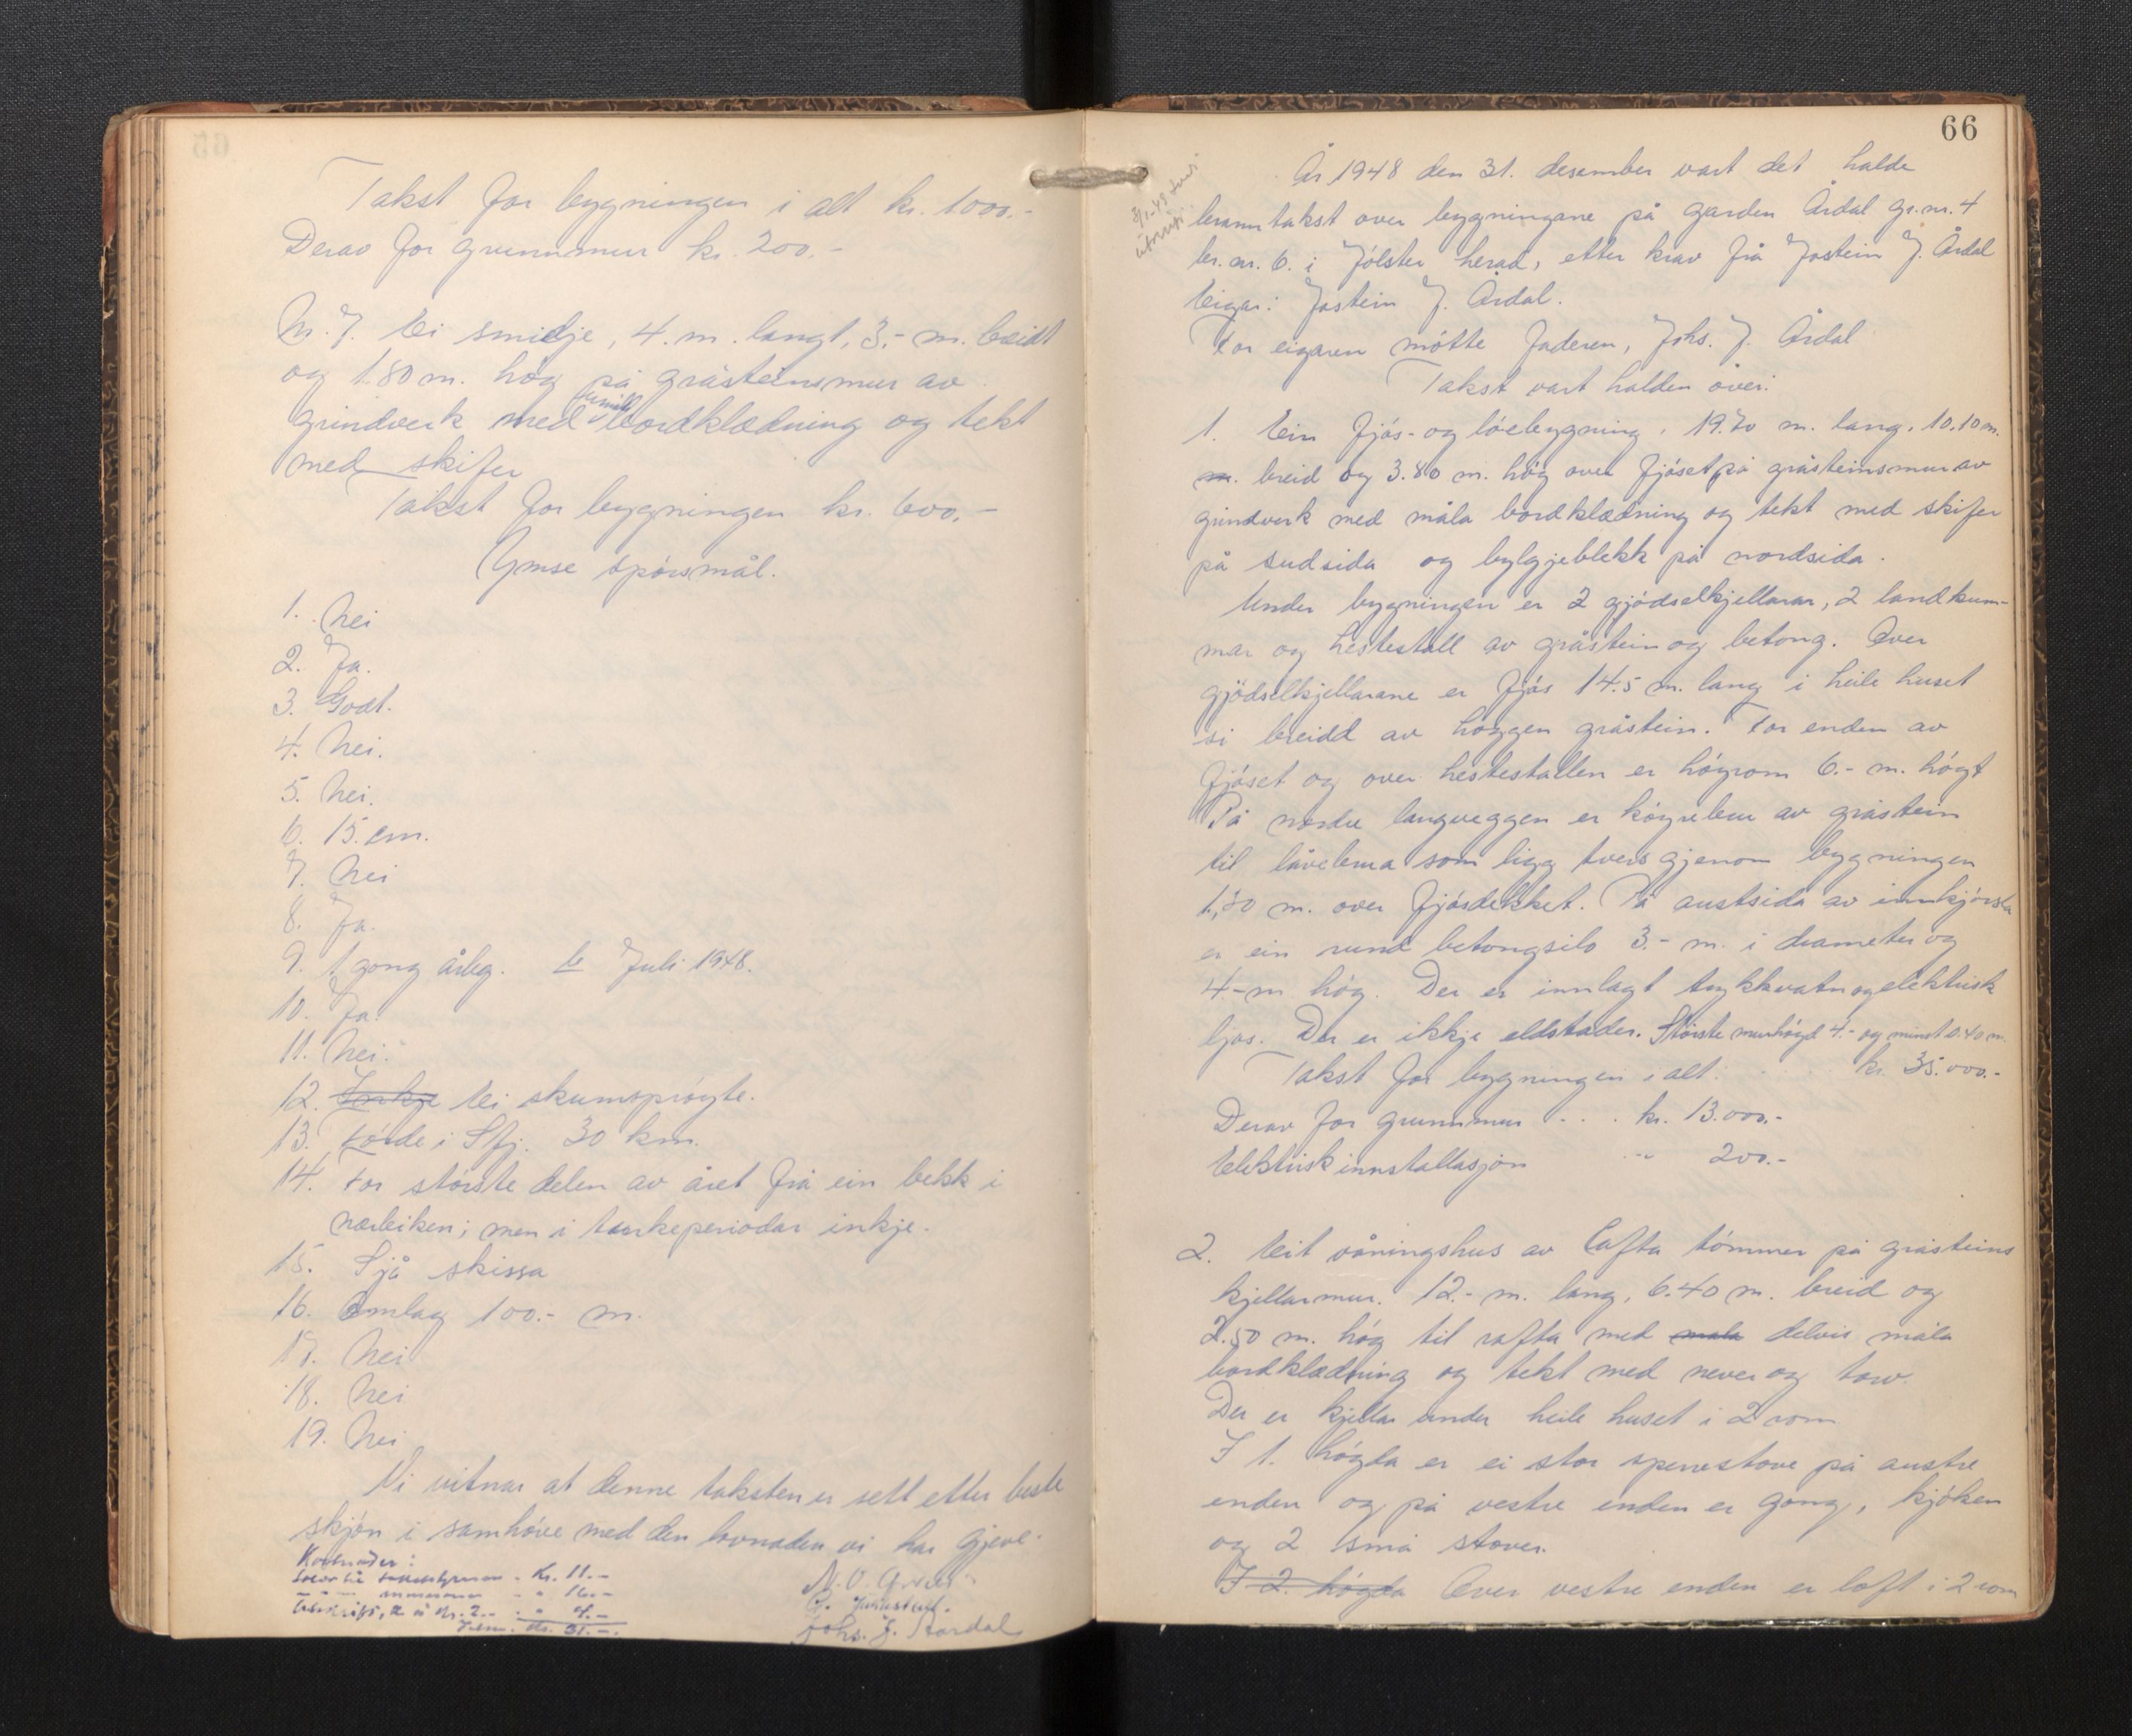 Takst for bygningen i alt kr. 1000.-
Derav for grunnmur kr. 200.-
Nr. 7. Ei smidje, 4. m. langt, 3.- m. breidt
og 1.80 m. høg på gråsteinsmur av
grindverk med umålt bordklædning og tekt
med skifer
Takst for bygningen kr. 600.-
Ymse spørsmål.
1. Nei
2. Ja.
3. Godt.
4. Nei.
5. Nei.
6. 15. cm.
7. Nei
8. Ja.
9. 1 gong årleg. 6 Juli 1948.
10. Ja.
11. Nei.
12. Inkje Ei skumsprøyte.
13. Førde i Sfj. 30 km.
14. For største delen av året frå ein bekk i
nærleiken; men i tørkeperiodar inkje.
15. Sjå skissa
16. Omlag 100.- m.
17. Nei
18. Nei
19. Nei
Vi vitnar at denne taksten er sett etter beste
skjøn i samhøve med den lovnaden vi har gjeve.
Kostnader:
kr. 11.-
" 16.-
Utskrift, 2 á kr. 2.- " 4.-
kr. 31.-
Johs. J. Aardal
66
År 1948 den 31. desember vart det halde
branntakst over bygningane på garden Årdal gr.nr. 4
br.nr. 6. i Jølster herad, etter krav frå Jostein J. Årdal
Eigar: Jostein J. Årdal.
For eigaren møtte faderen, Johs. J. Årdal
Takst vart halden over:
1. Ein fjøs- og løebygning, 19.70 m. lang, 10.10 m.
m. breid og 3.80 m. høg over fjøset på gråsteinsmur av
grindverk med måla bordklædning og tekt med skifer
på sudsida og bylgjeblekk på nordsida.
Under bygningen er 2 gjødselkjellarar, 2 landkum-
mar og hestestall av gråstein og betong. Over
gjødselkjellarane er fjøs 14.5 m. lang i heile huset
si breidd av hoggen gråstein. For enden av
fjøset og over hestestallen er høyrom 6.- m. høgt
På nordre langveggen er køyrebru av gråstein
til låvebrua som ligg tvers gjenom bygningen
1,80 m. over fjøsdekket. På austsida av innkjørsla
er ein rund betongsilo 3.- m. i diameter og
4.- m høg. Der er innlagt trykkvatn og elektrisk
ljos. Der er ikkje eldstader. Største murhøgd 4.- og minst 0.40 m.
Takst for bygningen i alt: kr. 35.000.-
Derav for grunnmur ... kr. 13.000.-
Elektrisk innstallasjon " 200.-
2. Eit våningshus av lafta tømmer på gråsteins
kjellarmur. 12.- m. lang, 6.40 m. breid og
2.50 m. høg til rafta med mala delvis måla
bordklædning og tekt med never og torv.
Der er kjellar under heile huset i 2 rom
I 1. høgda er ei stor sperrestove på austre
enden og på vestre enden er gang, kjøken
og 2 små stover.
I 2. høgda Over vestre enden er loft i 2 rom